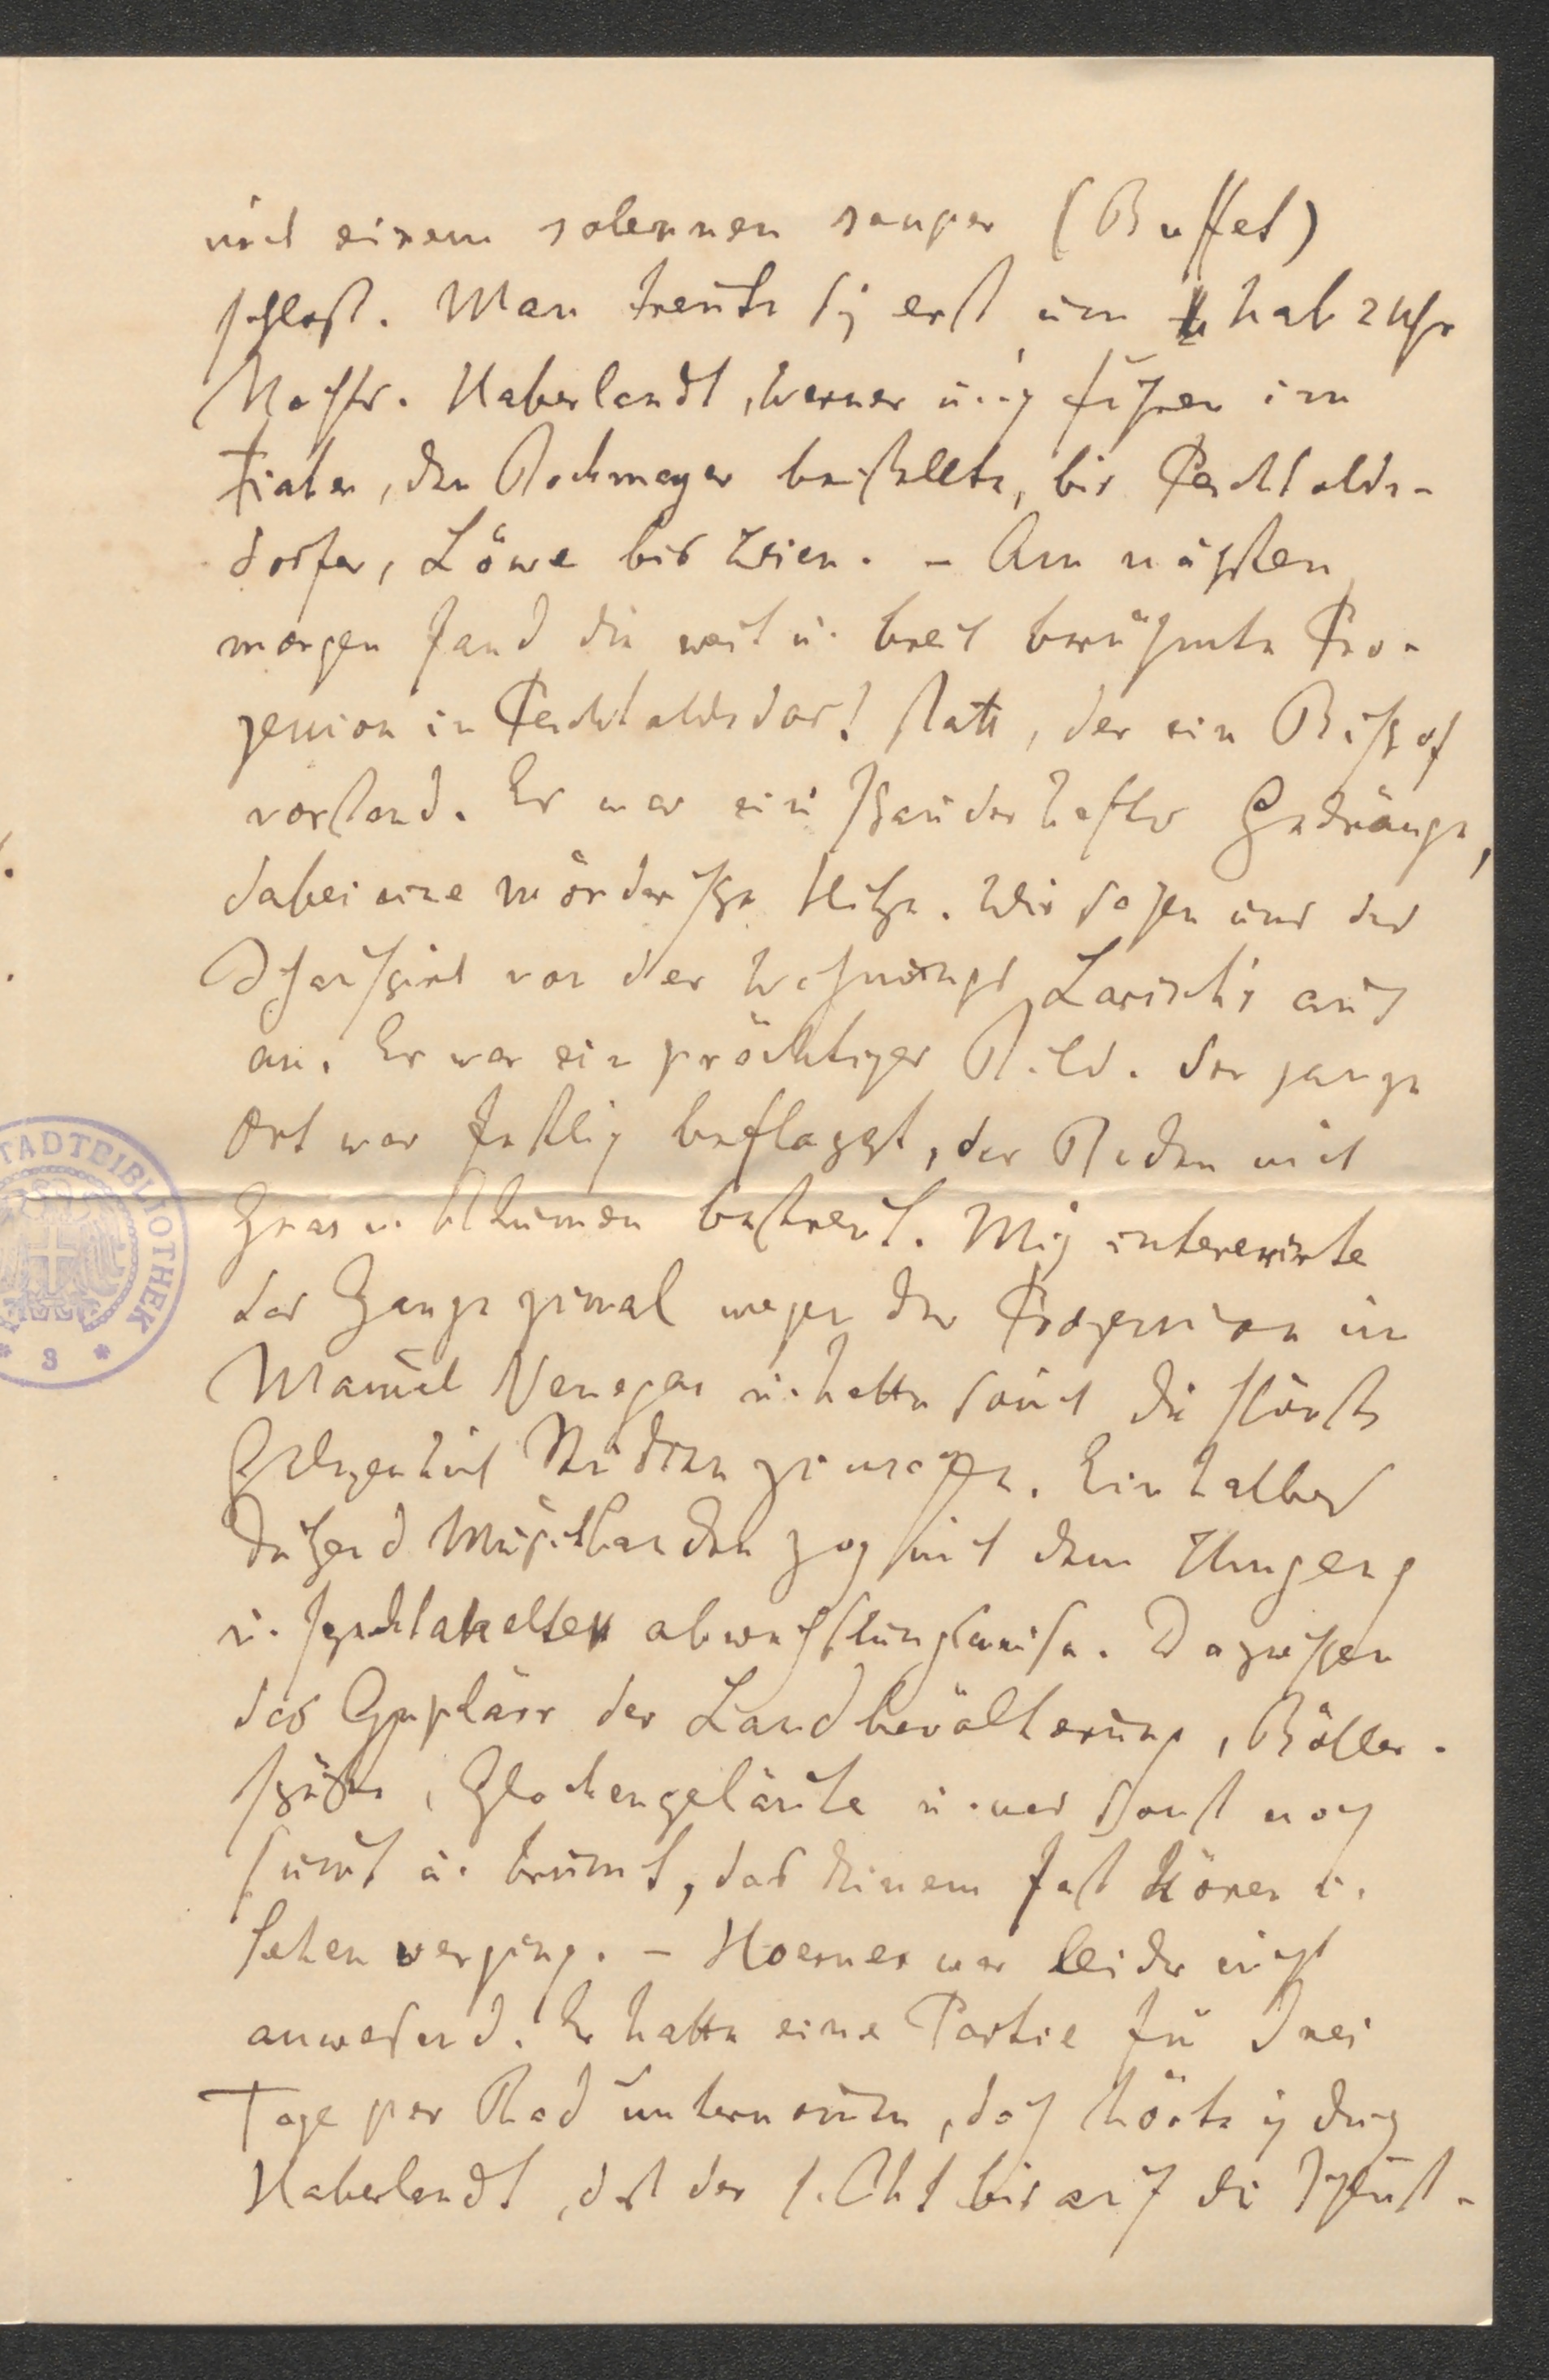 mit einem solennen souper (Buffet)
schloß. Man trennte sich erst um halb 2 Uhr
Nachts. Haberlandt, Werner u. ich fuhren im
Fiaker, den Rockmayer beistellte, bis Perchtolds-
dorfer, Löwe bis Wien. – Am nächsten
morgen fand die weit u. breit berühmte Pro-
zession in Perchtoldsdorf statt, der ein Bischof
vorstand. Es war ein schauderhaftes Gedränge,
dabei eine mörderische Hitze. Wir sahen uns das
Schauspiel vor der Wohnung Larisch's aus
an. Es war ein prächtiges Bild. Der ganze
Ort war festlich beflaggt, der Boden mit
Gras u. Blumen bestreut. Mich interessirte
das Ganze zumal wegen der Prozession im
Manuel Venegas u. hatte somit die schönste
Gelegenheit Studien zu machen. Ein halbes
Dutzend Musikbanden zog mit dem Umgang
u. spektakelten abwechslungsweise. Dazwischen
das Geplärr der Landbevölkerung, Böller-
schüsse, Glockengeläute u. was sonst noch
summt u. brummt, daß Einem fast Hören u.
Sehen verging. – Hoernes war leider nicht
anwesend. Er hatte eine Partie für drei
Tage per Rad unternommen, doch hörte ich durch
Haberlandt, daß der 1. Akt bis auf die Schluß-